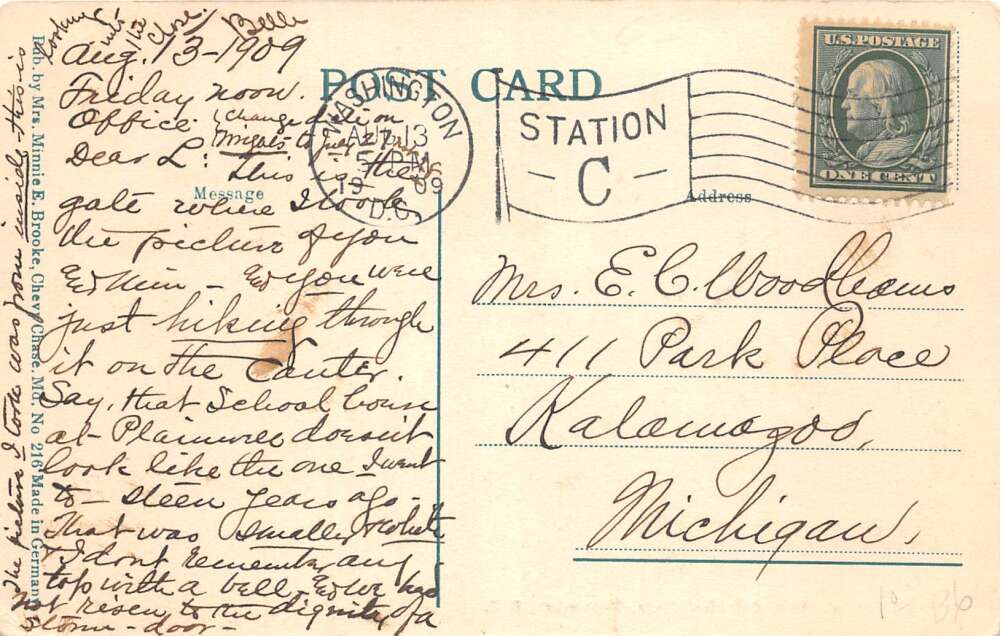 POST CARD
Message
Address
U.S. POSTAGE
ONE CENT
WASHINGTON
AUG 13
5 PM
1909
D.C.
STATION
C
Aug. 13-1909
Friday noon.
Office.
Dear L: This is the
gate where I took
the picture of you
& Min - & you were
just hiking through
it on the Canter.
Say, that School house
at Plainwell doesn't
look like the one I went
to - steen years ago -
That was smaller, & white
& I dont remember any
top with a bell - & we had
not risen to the dignity of a
storm-door -
The picture I took was from inside - this is
looking
close,
Belle
Mrs. E. C. Woodhams
411 Park Place
Kalamazoo,
Michigan,
Pub. by Mrs. Minnie E. Brooke, Chevy Chase, Md. No 216 Made in Germany